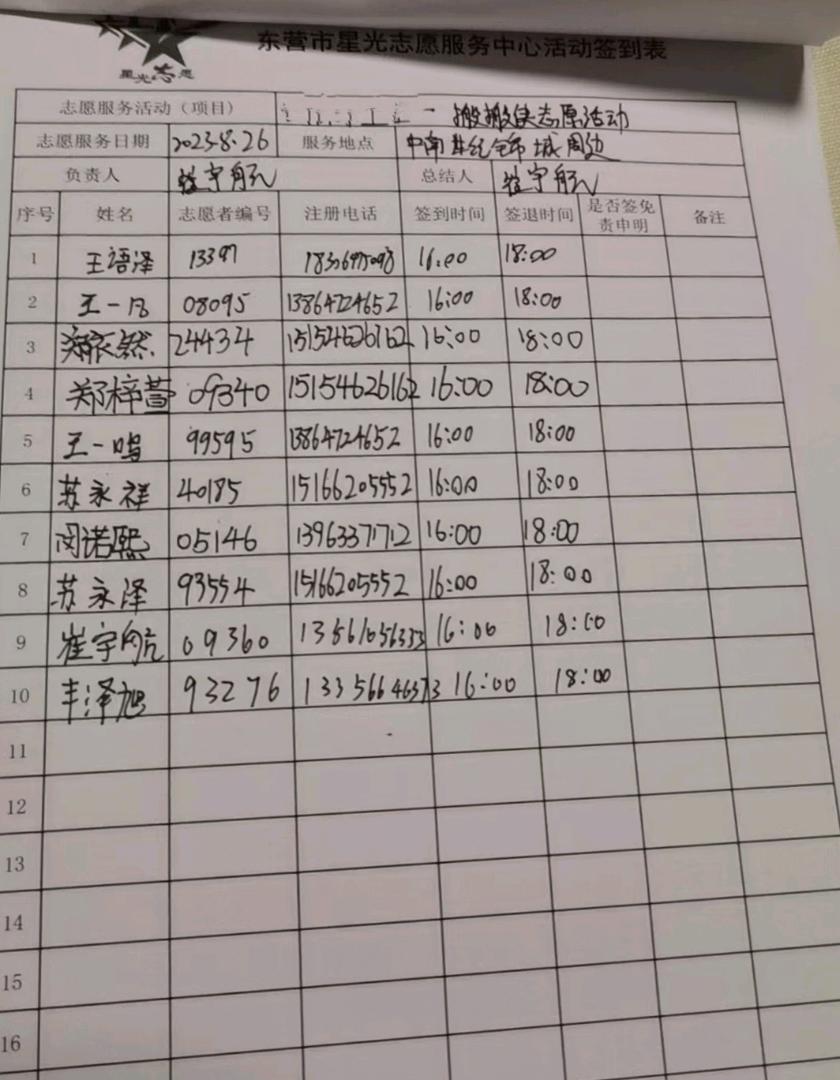 东营市星光志愿服务中心活动签到表
星光志愿
志愿服务活动（项目） 一搬搬侠志愿活动
志愿服务日期 2023.8.26 服务地点 中南世纪锦城周边
负责人 崔宇航 总结人 崔宇航
序号 姓名 志愿者编号 注册电话 签到时间 签退时间 是否签免责申明 备注
1 王语泽 13397 16:00 18:00
2 王一 08095 13864724652 16:00 18:00
3 然 24434 15154626162 16:00 18:00
4 郑梓萱 09340 15154626162 16:00 18:00
5 王一鸣 99595 13864724652 16:00 18:00
6 苏永祥 40185 15166205552 16:00 18:00
7 闵诺熙 05146 13963371712 16:00 18:00
8 苏永泽 93554 15166205552 16:00 18:00
9 崔宇航 09360 13561056333 16:00 18:00
10 丰泽旭 93276 13356646373 16:00 18:00
11
12
13
14
15
16